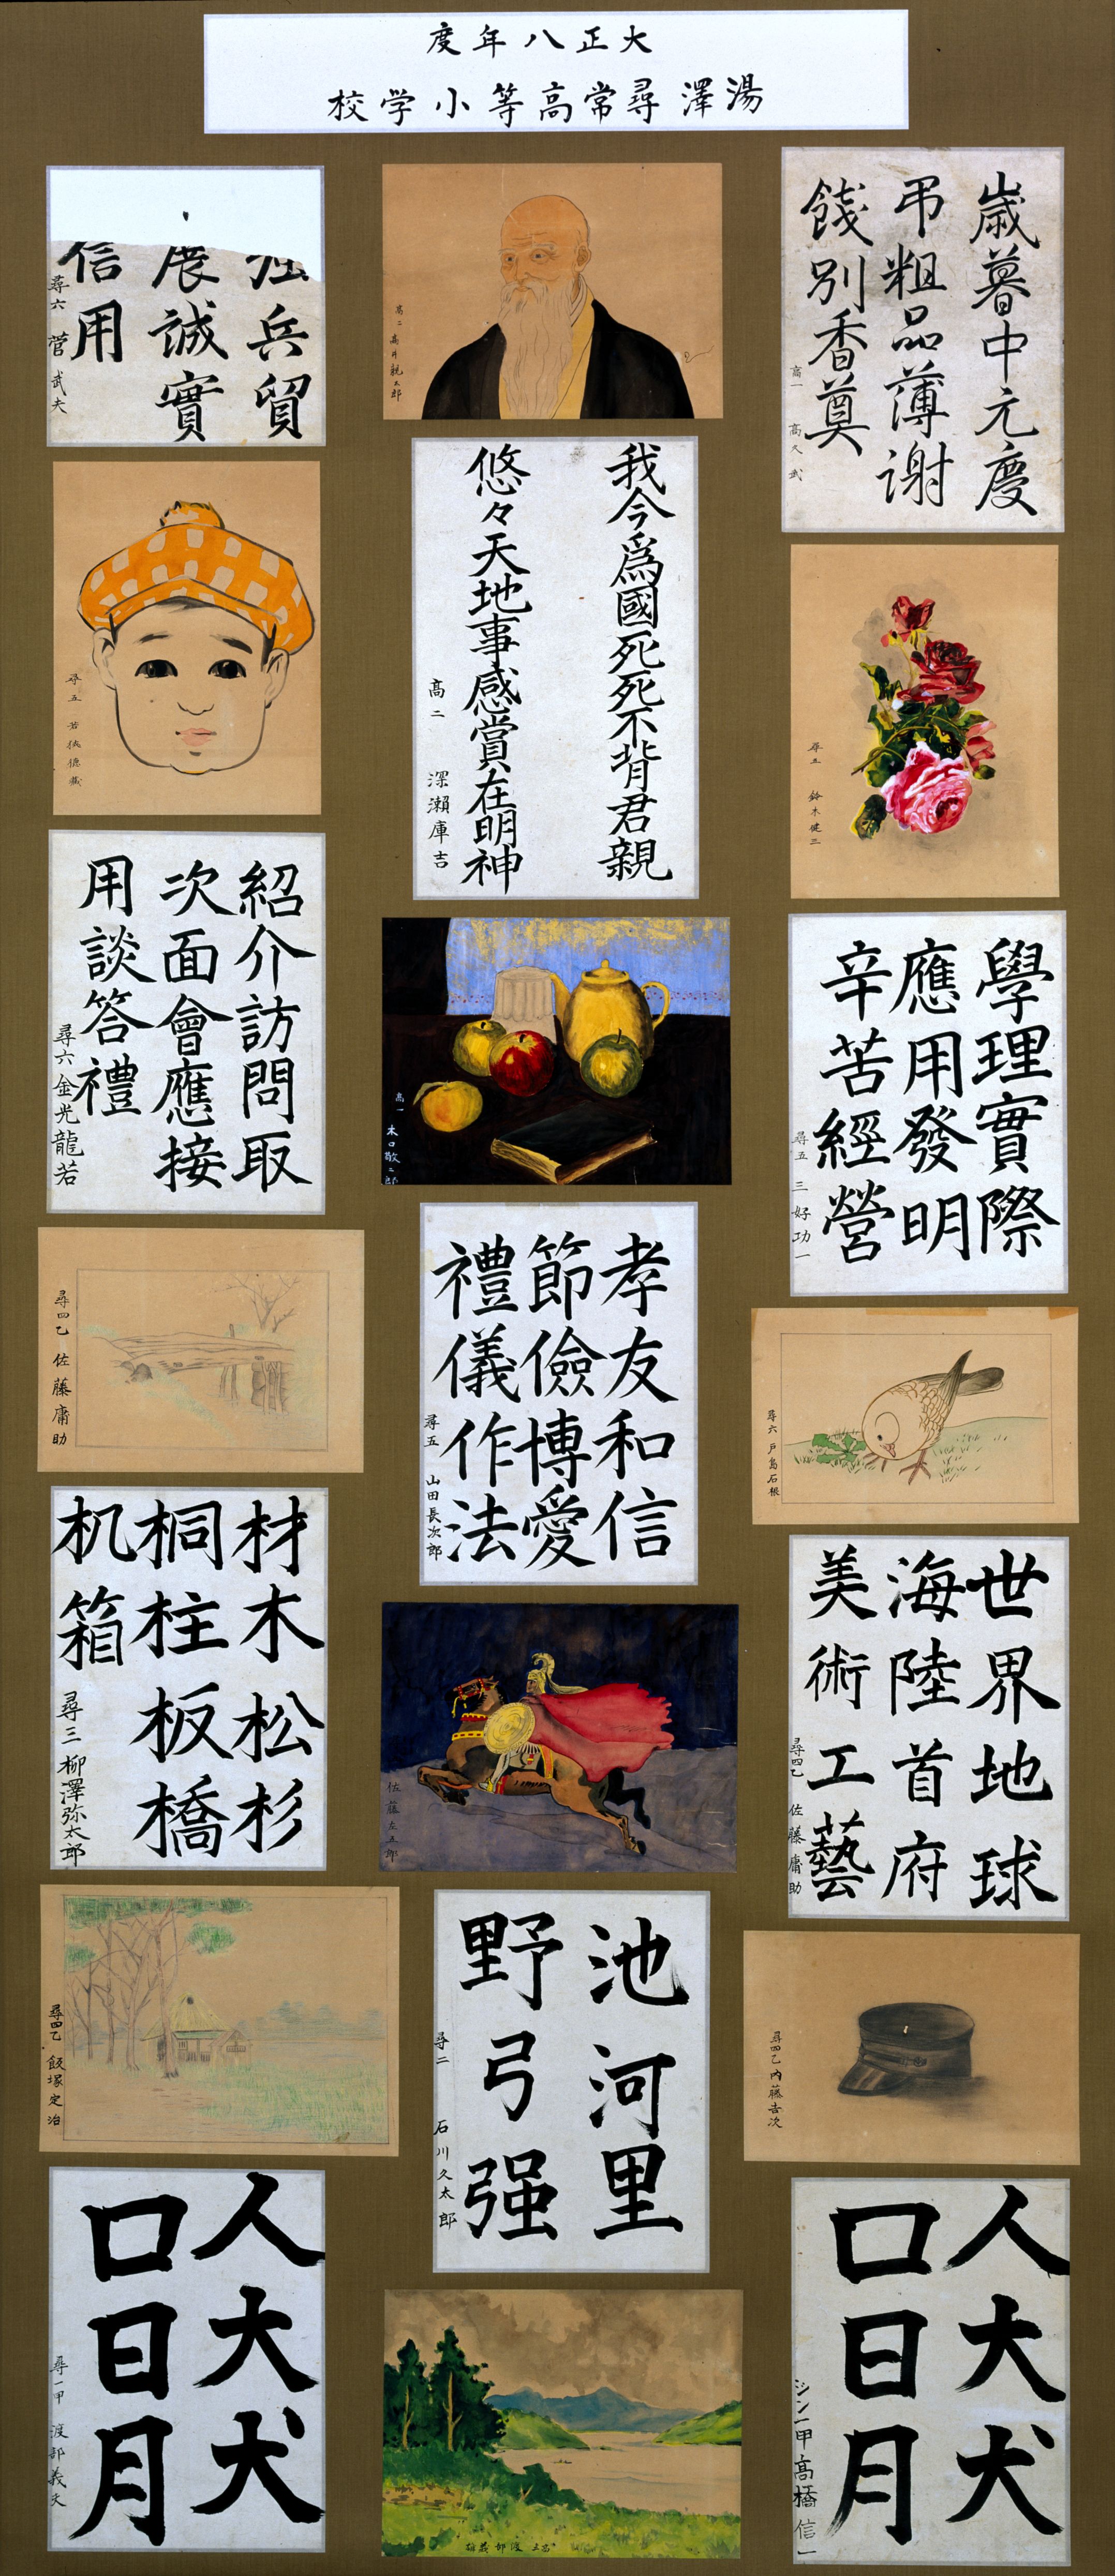 大正八年度
湯澤尋常高等小学校
歳暮中元慶
弔粗品薄謝
餞別香奠
高一 高久武
高二 高井親太郎
兵貿
展誠實
信用
尋六 菅武夫
我今爲國死死不背君親
悠々天地事感賞在明神
高二 深瀬庫吉
尋五 鈴木健三
尋五 若依德蔵
學理實際
應用發明
辛苦經營
尋五 三好功一
高一 木口敬二郎
紹介訪問取
次面會應接
用談答禮
尋六 金光龍若
孝友和信
節儉博愛
禮儀作法
尋五 山田長次郎
尋六 戸島石根
尋四乙 佐藤庸助
世界地球
海陸首府
美術工藝
尋四乙 佐藤庸助
佐藤左五郎
材木松杉
桐柱板橋
机箱
尋三 柳澤弥太郎
尋四乙 内藤吉次
池河里
野弓强
尋二 石川久太郎
尋四乙 飯塚定治
人大犬
口日月
ジン一甲 髙橋信一
高土 渡部義雄
人大犬
口日月
尋一甲 渡部義文